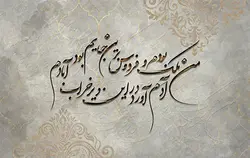 من ملک بودم و فردوس برین جایم بود
آدم آورد در این دیر خراب آبادم